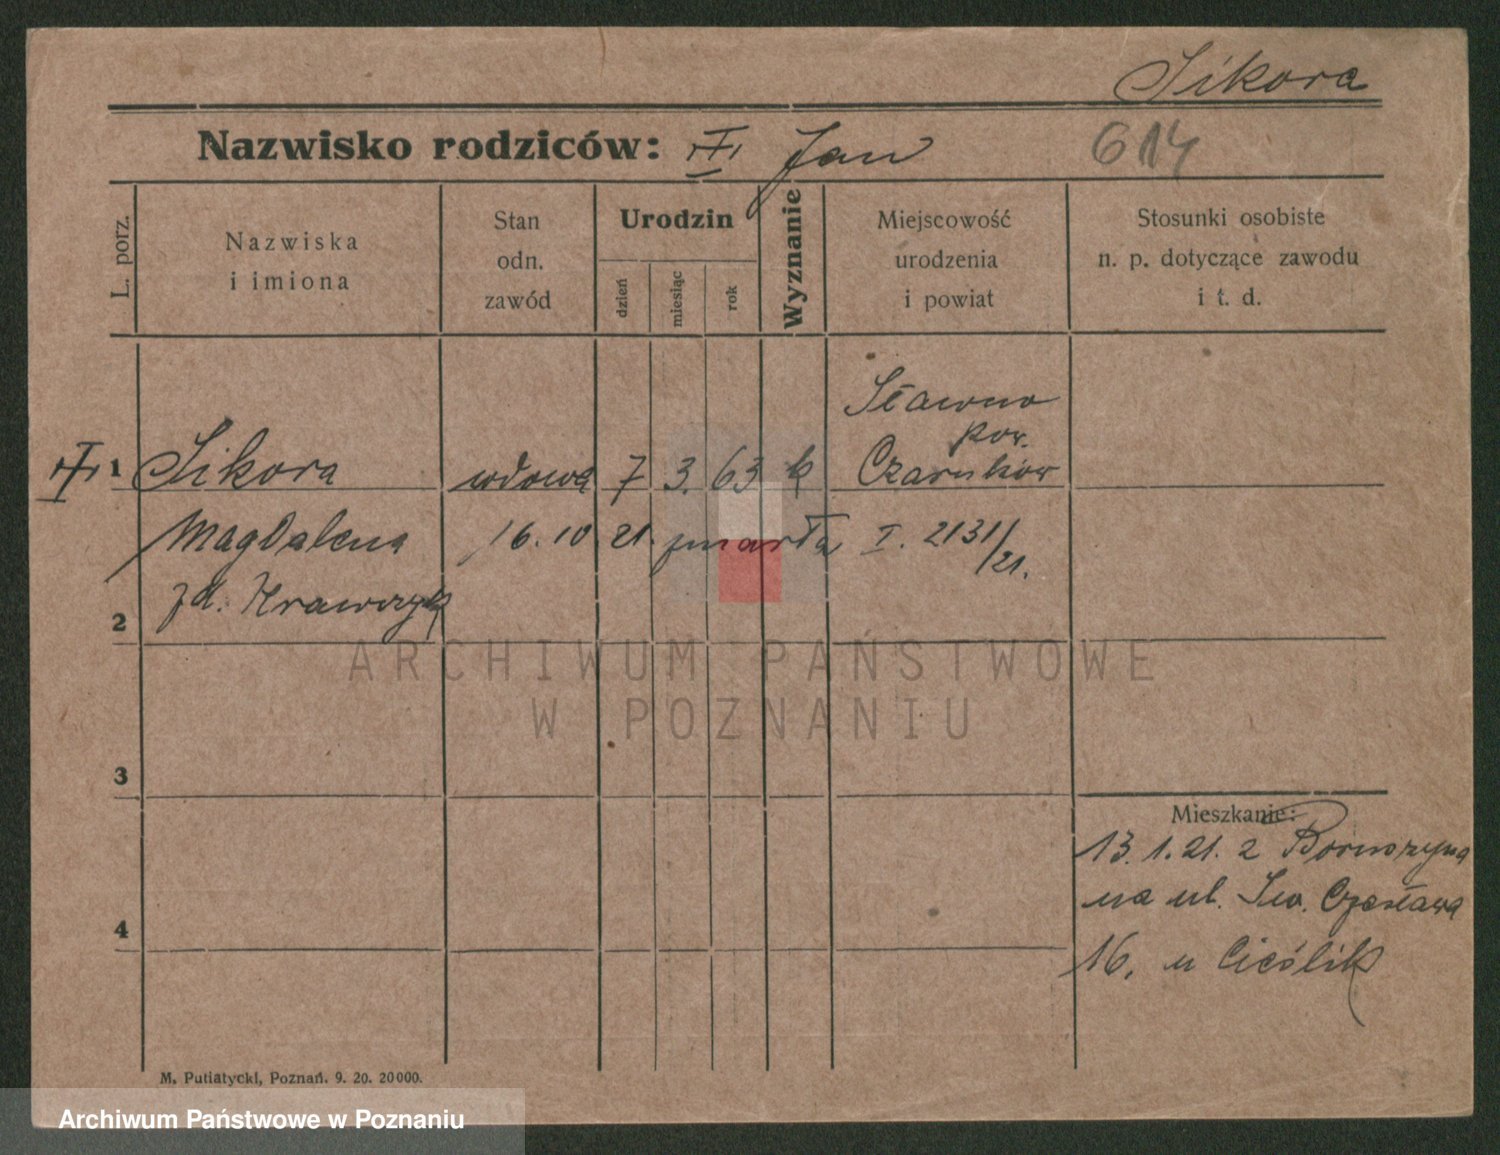 Sikora
Nazwisko rodziców: Jan
614
L. porz.
Nazwiska
i imiona
Stan
odn.
zawód
Urodzin
dzień
miesiąc
rok
Wyznanie
Miejscowość
urodzenia
i powiat
Stosunki osobiste
n. p. dotyczące zawodu
i t. d.
1 Sikora wdowa 7 3. 63 k Sławno
pow.
Czarnków
Magdalena 16. 10 21. zmarła I. 2131/21.
zd. Krawczyk
2
3
4
Mieszkanie:
13. 1. 21. z Boruszyna
na ul. Św. Czesława
16. u Cieślik
M. Putiatycki, Poznań. 9. 20. 20000.
ARCHIWUM PAŃSTWOWE
W POZNANIU
Archiwum Państwowe w Poznaniu